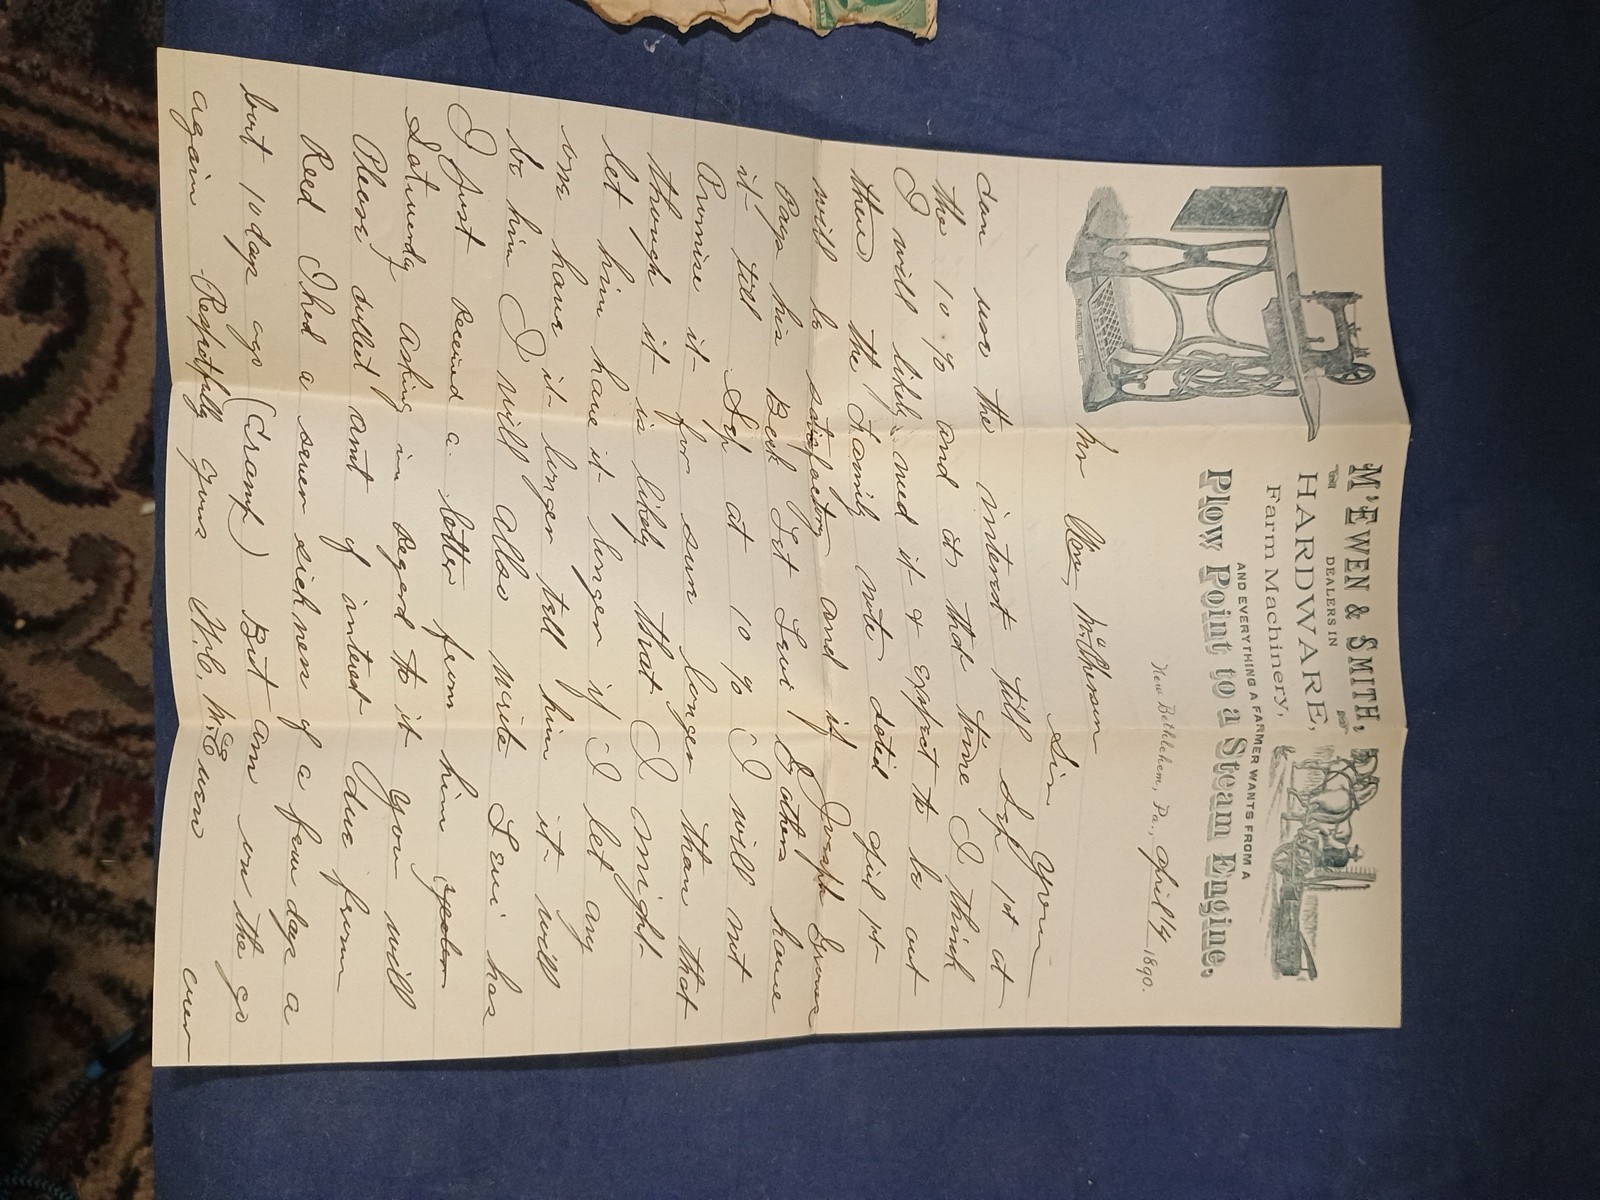 M'EWEN & SMITH,
DEALERS IN
HARDWARE,
Farm Machinery,
AND EVERYTHING A FARMER WANTS FROM A
Plow Point to a Steam Engine.
New Bethlehem, Pa., April 14 1890.
Mr Wm McPherson
Sir You
can use the interest till Sep 1st at
the 10 % and at that time I think
I will likely need it & expect to be out
then the family note dated April 1st
will be satisfactory and if Joseph
Pays his Back Let Levi & others have
it till Sep at 10 % I will not
Promise it for sure longer than that
though it is likely that I might
let him have it longer if I let any
one have it longer tell him it will
be him I will allso write Levi has
I just received a letter from him
Saturday asking in Regard to it You will
Please collect amt of interest due from
Reed I had a sever sickness of a few days a
but 10 days ago (Cramp) But am on the go
again Respectfully yours W.C. McEwen
over